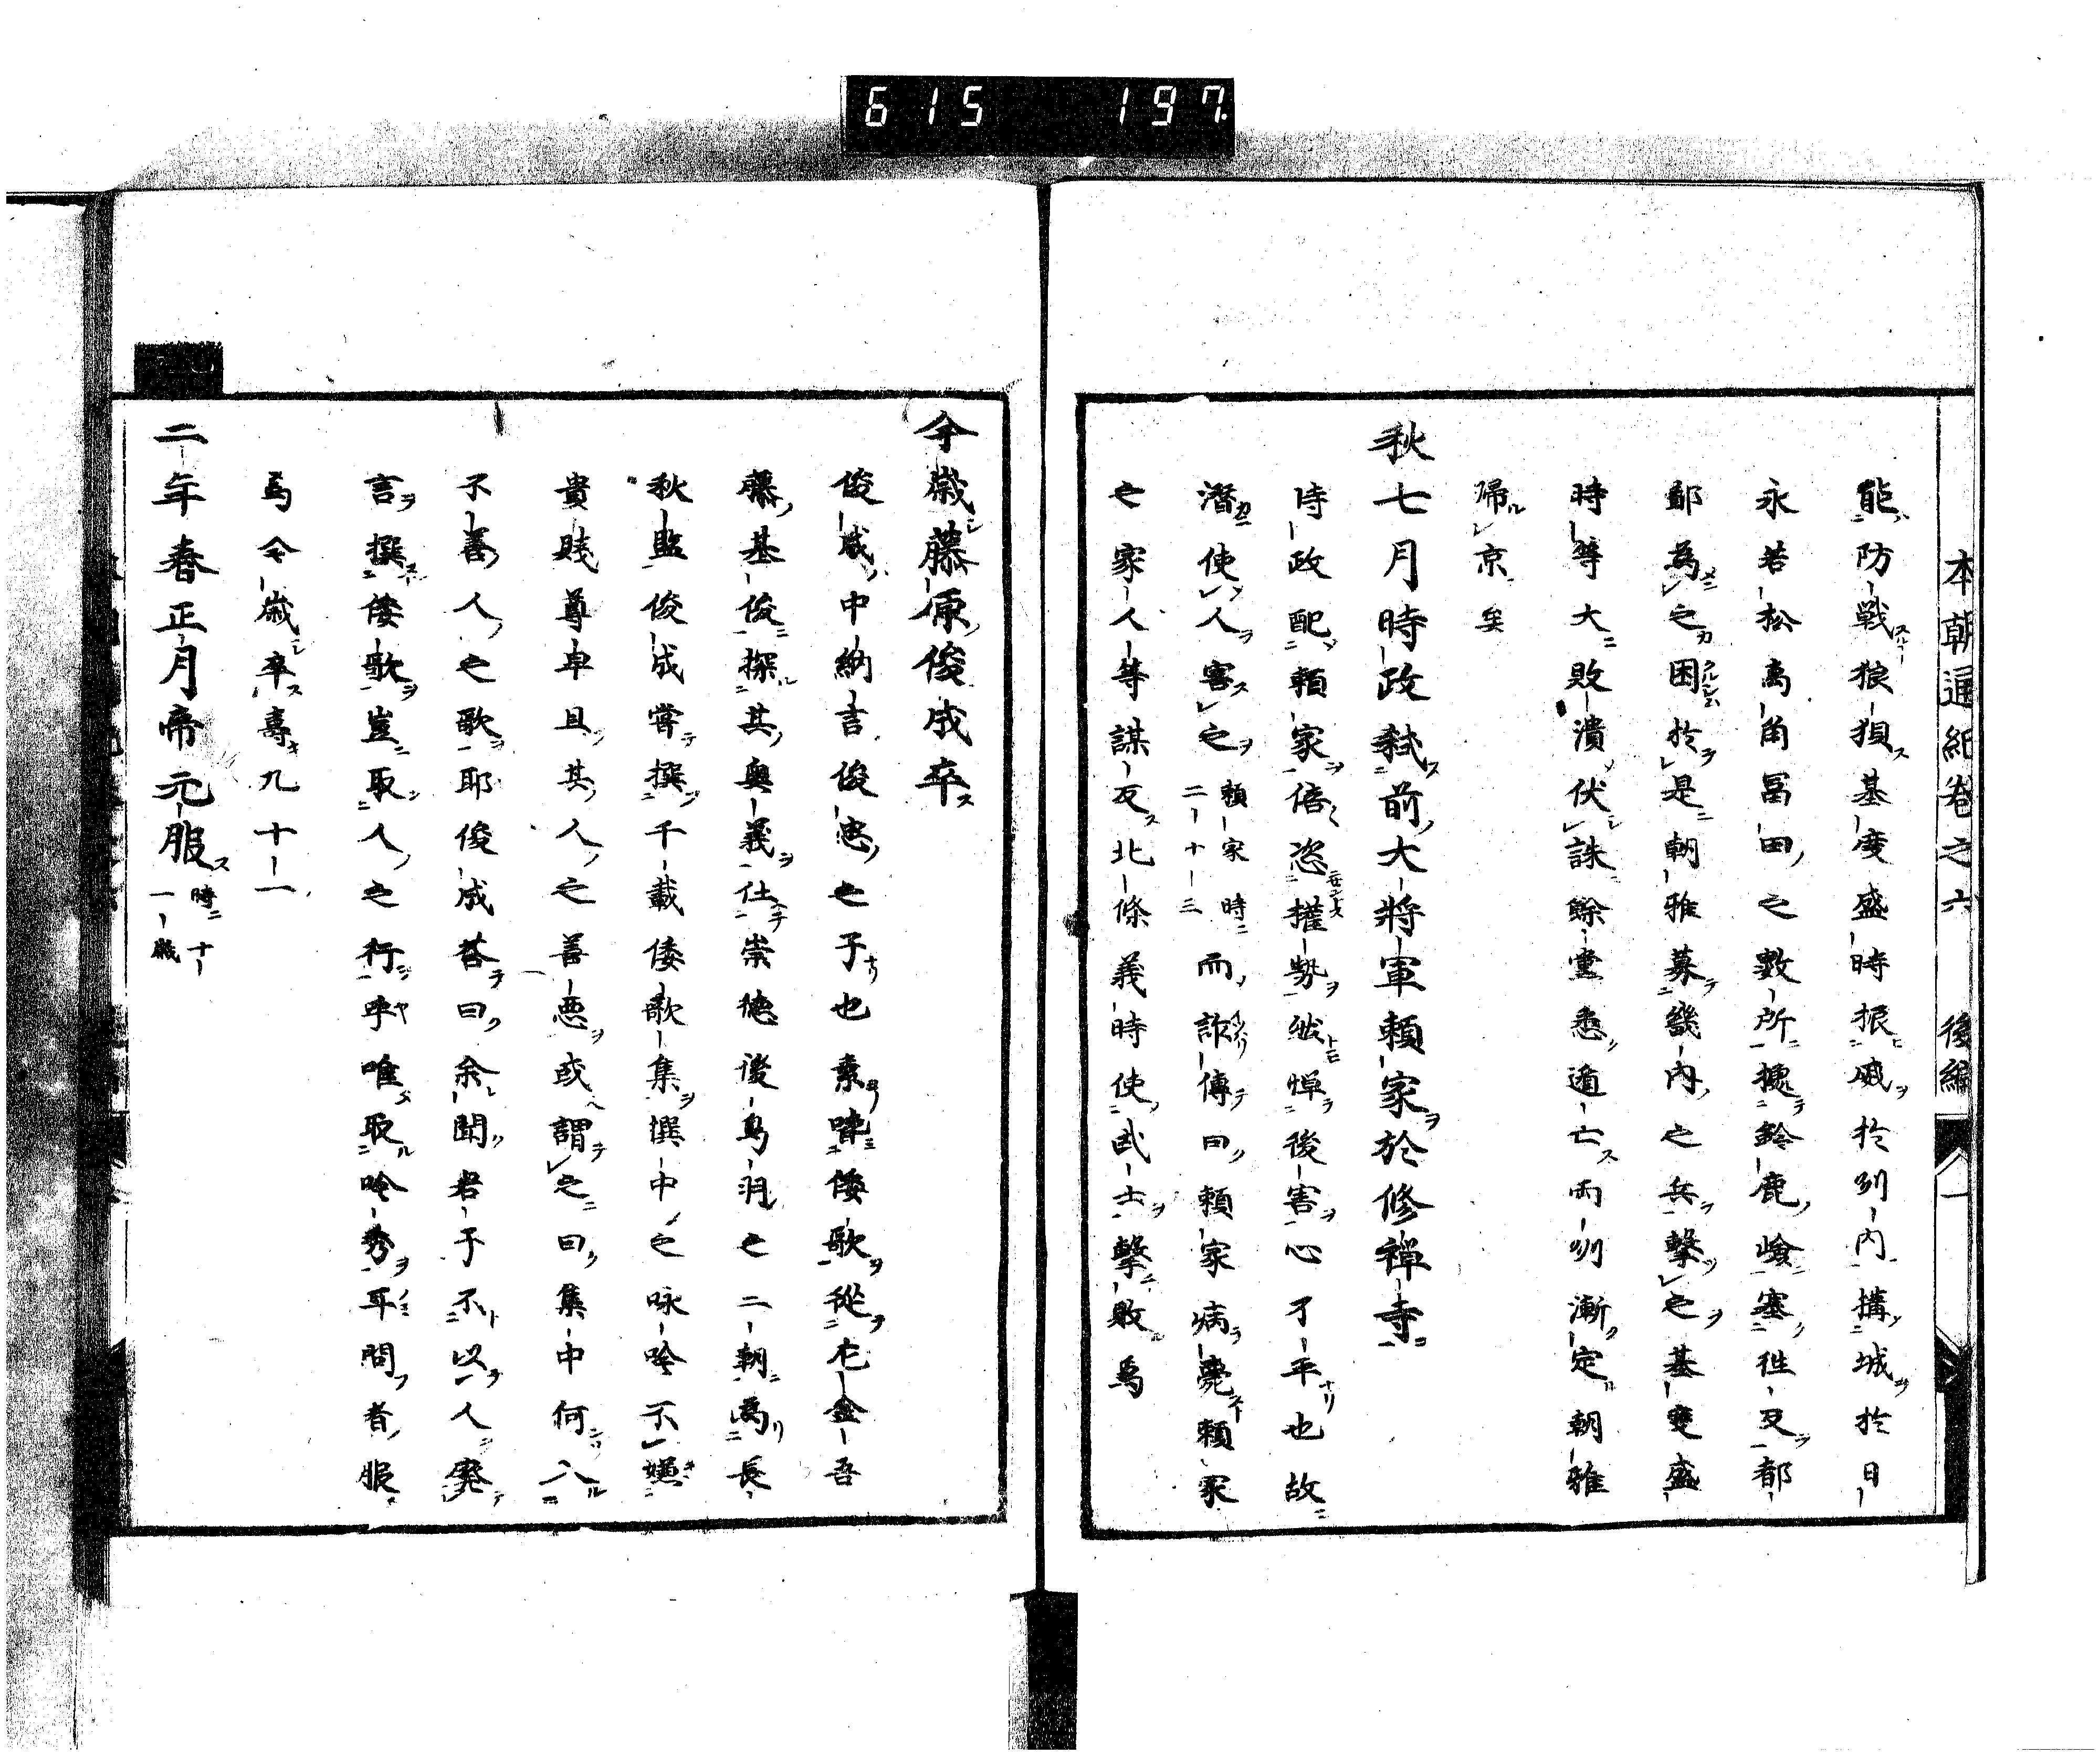 615 197
本朝通紀卷之六 後編
能防戦狼狽基度盛時振威於列内搆城於日
永若松髙角冨田之數所據鈴鹿嶮塞徃及都
鄙為之困於是朝雅募畿内之兵擊之基度盛
時等大敗潰伏誅餘黨悉遁亡兩州漸定朝雅
歸京矣
秋七月時政弑前大將軍頼家於修禅寺
時政配頼家倍恣權勢然憚後害心不平也故
潜使人害之頼家時二十三而詐傳曰頼家病薨頼家
之家人等謀反北條義時使武士擊敗焉
今歳藤原俊成卒
俊成中納言俊忠之子也素嗜倭歌從左金吾
藤基俊探其奥義仕崇徳後鳥羽之二朝為長
秋監俊成嘗撰千載倭歌集撰中之咏吟不嫌
貴賤尊卑且其人之善悪或謂之曰集中何入
不善人之歌耶俊成荅曰余聞君子不以人廃
言撰倭歌豈取人之行乎唯取吟秀耳問者服
焉今歳卒壽九十一
二年春正月帝元服時十一歳